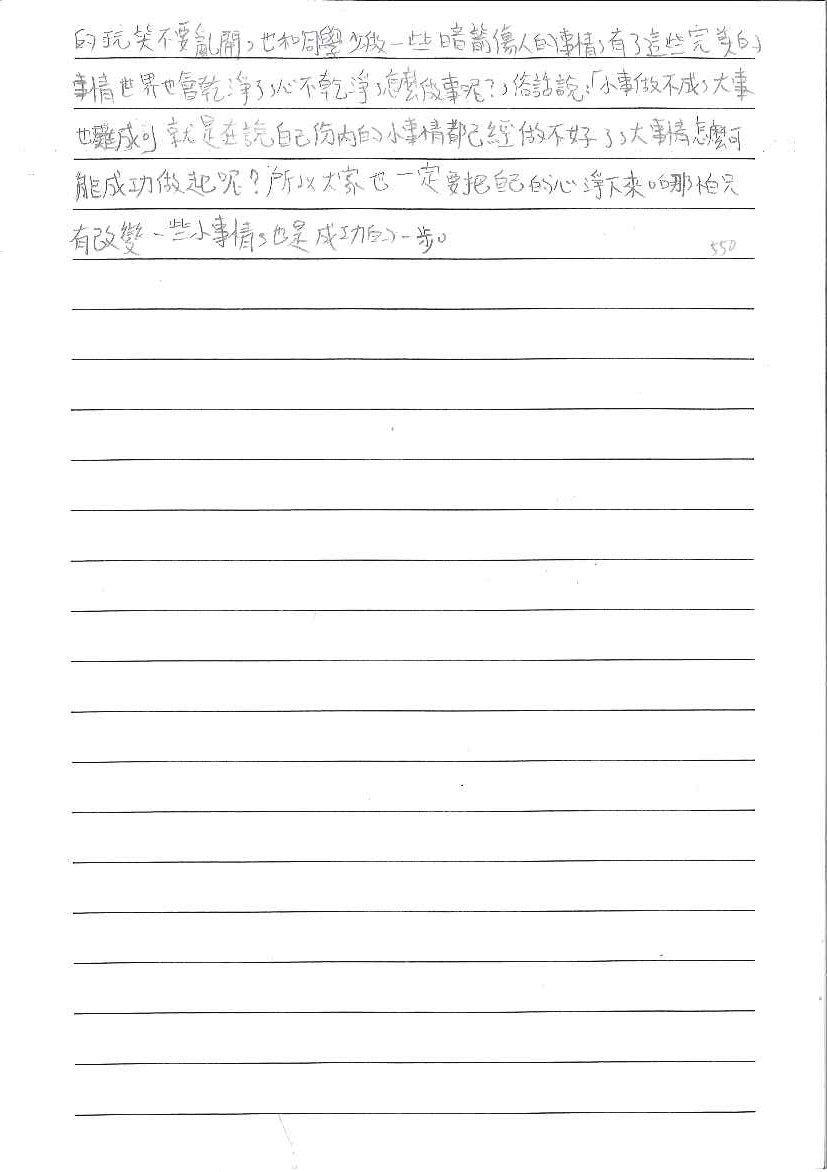 的玩笑不要亂開,也和同學少做一些暗箭傷人的事情,有了這些完美的
事情世界也會乾淨了,心不乾淨,怎麼做事呢?,俗話說:「小事做不成,大事
也難成。」就是在說自己份內的小事情都已經做不好了,大事情怎麼可
能成功做起呢?所以大家也一定要把自己的心淨下來。哪怕只
有改變一些小事情,也是成功的一步。
550